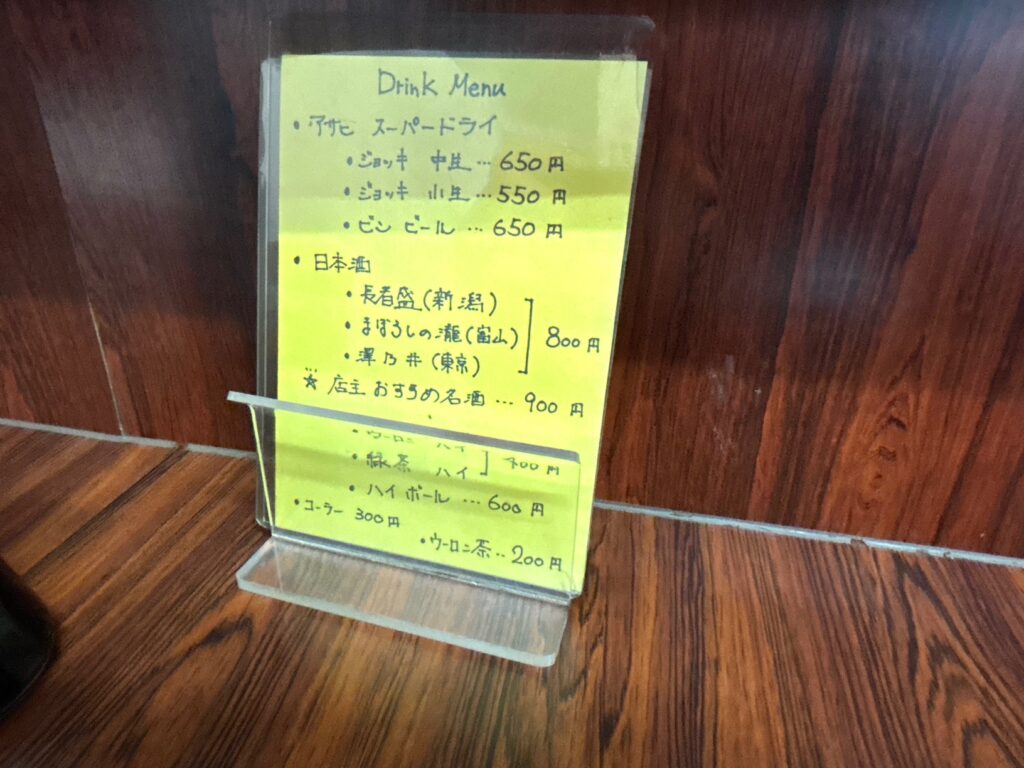 Drink Menu
・アサヒ スーパードライ
・ジョッキ 中生 … 650円
・ジョッキ 小生 … 550円
・ビン ビール … 650円
・日本酒
・長者盛(新潟)
・まぼろしの瀧(富山) 800円
・澤乃井(東京)
☆ 店主おすすめ名酒 … 900円
ハイ
・緑茶 ハイ 円
・ハイボール … 600円
・コーラー 300円
・ウーロン茶 ‥ 200円